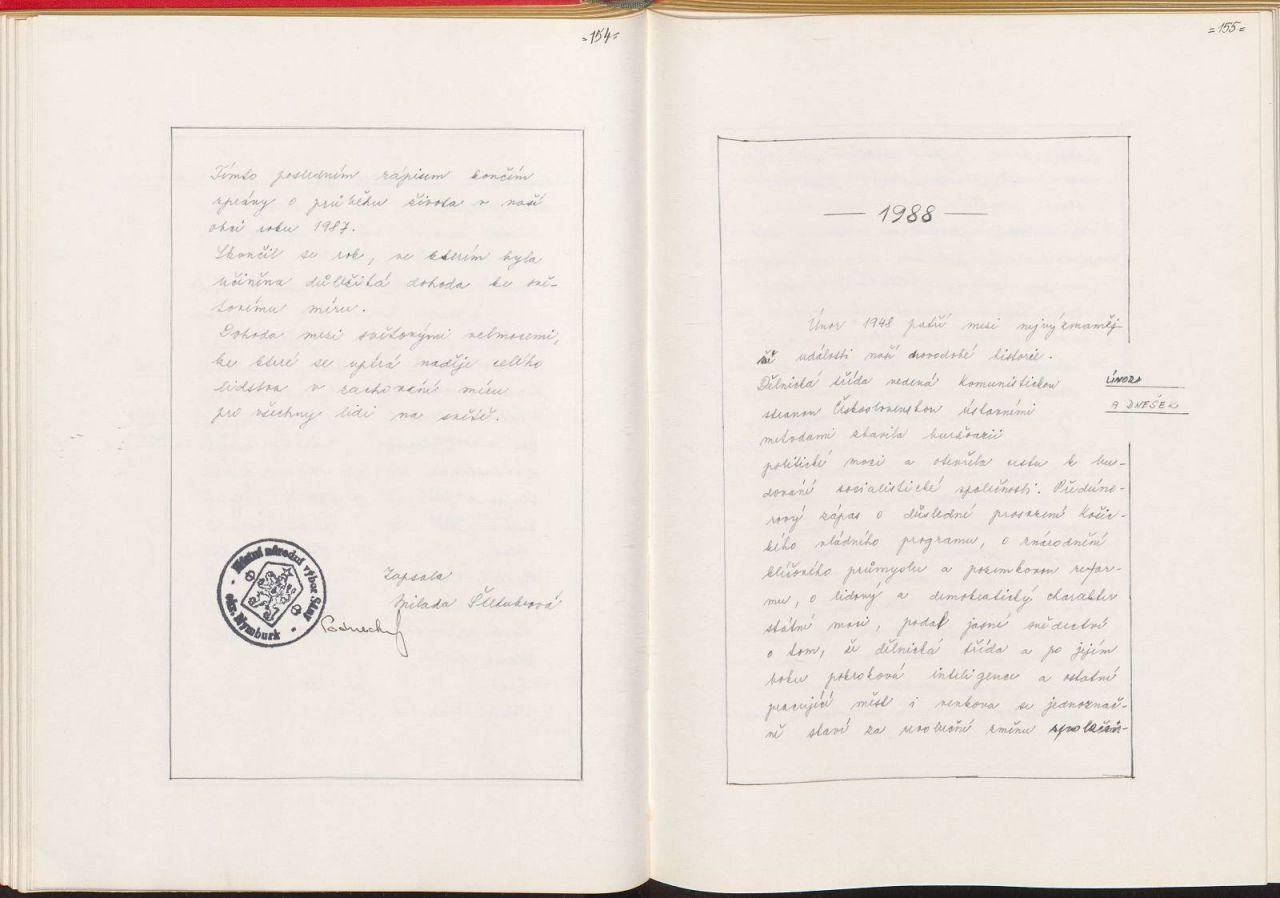 =154=
Tímto posledním zápisem končím
zprávy o průběhu života v naší
obci roku 1987.
Skončil se rok, ve kterém byla
učiněna důležitá dohoda ke svě-
tovému míru.
Dohoda mezi světovými velmocemi,
ke které se upírá naděje celého
lidstva v zachování míru
pro všechny lidi na světě.
Místní národní výbor Sány
okr. Nymburk
Zapsala
Milada
=155=
1988
Únor 1948 patří mezi nejvýznamněj-
ší události naší novodobé historie.
Dělnická třída vedená Komunistickou
stranou Československou ústavními
metodami zbavila buržoazii
politické moci a otevřela cestu k bu-
dování socialistické společnosti. Předúno-
rový zápas o důsledné prosazení Košic-
kého vládního programu, o znárodnění
klíčového průmyslu a pozemkovou refor-
mu, o lidový a demokratický charakter
státní moci, podal jasné svědectví
o tom, že dělnická třída a po jejím
boku pokroková inteligence a ostatní
pracující měst i venkova se jednoznač-
ně staví za revoluční změnu společen-
ÚNOR
A DNEŠEK